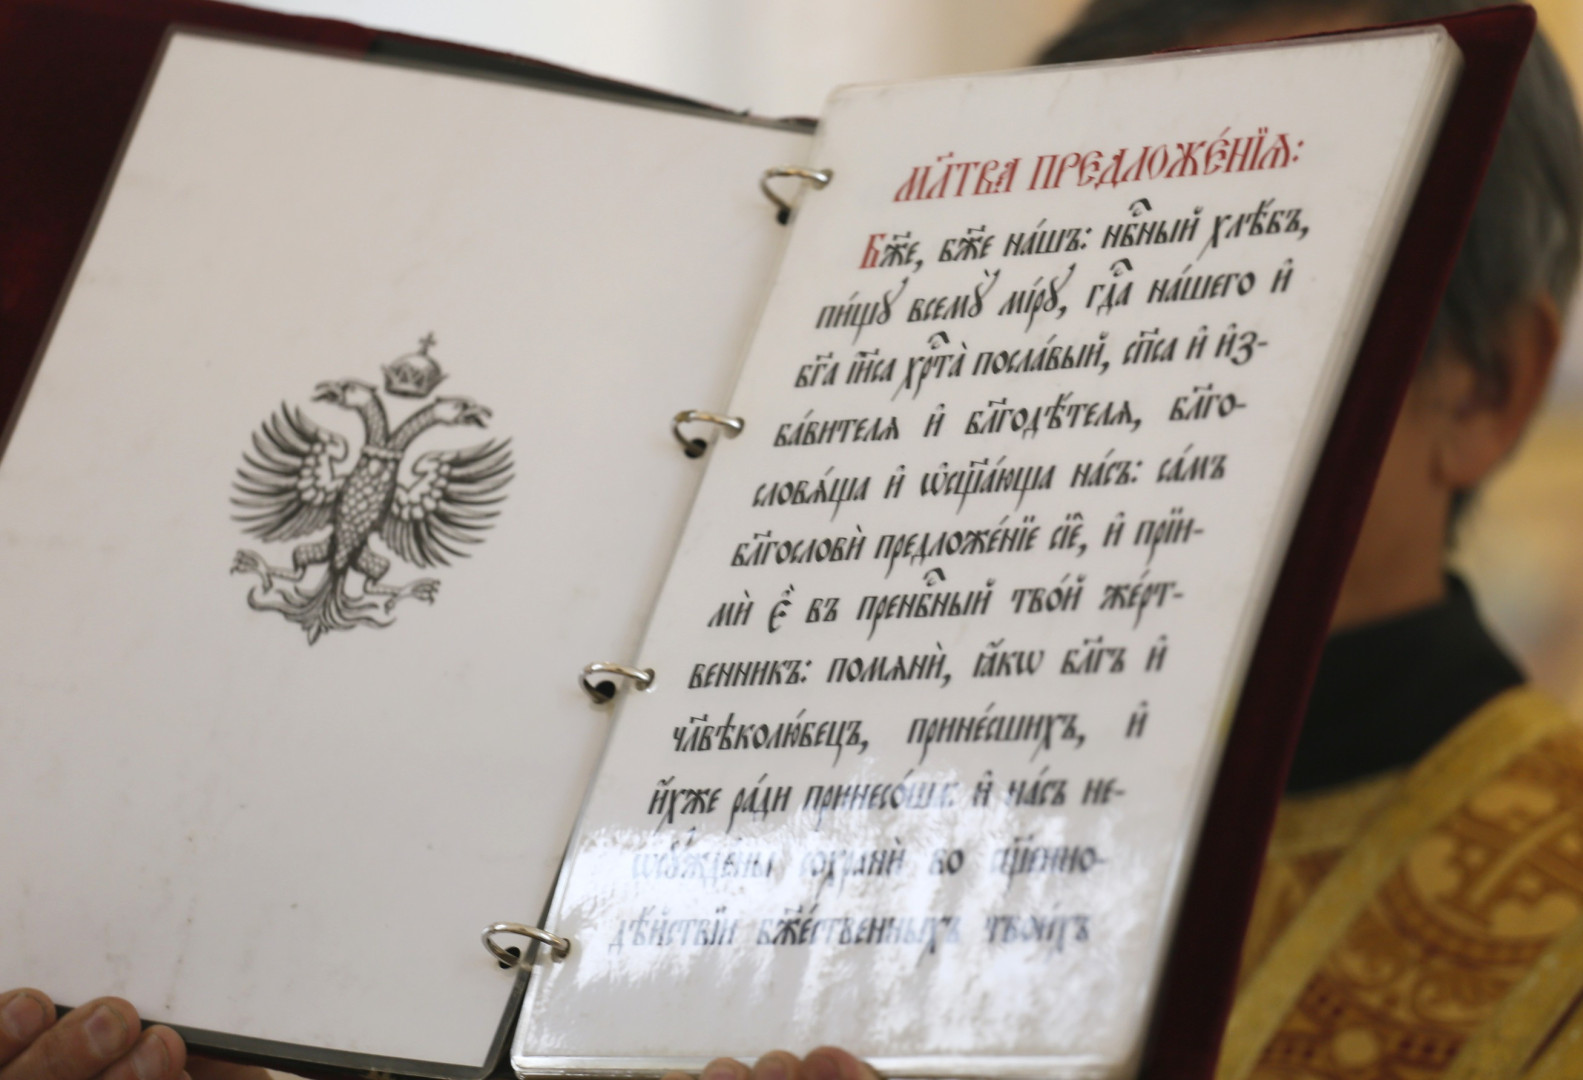 Мл҃тва предложе́нїѧ:
Бж҃е, бж҃е на́шъ: нбⷭ҇ный хлѣ́бъ,
пи́щꙋ всемꙋ̀ мі́рꙋ, гдⷭ҇а на́шего и҆
бг҃а і҆и҃са хрⷭ҇та̀ посла́вый, сп҃са и҆ и҆з-
ба́вителѧ и҆ бл҃годѣ́телѧ, бл҃го-
словѧ́ща и҆ ѡ҆сщ҃а́юща на́съ: са́мъ
бл҃гословѝ предложе́нїе сїѐ, и҆ прїи-
мѝ є҆̀ въ пренбⷭ҇ный тво́й же́рт-
венникъ: помѧнѝ, ꙗ҆́кѡ бл҃гъ и҆
чл҃вѣколю́бецъ, прине́сшихъ, и҆
и҆́хже ра́ди принесо́ша: и҆ на́съ не-
ѡсꙋжде́ны сохранѝ во сщ҃енно-
дѣ́йствїи бж҃е́ственныхъ твои́хъ